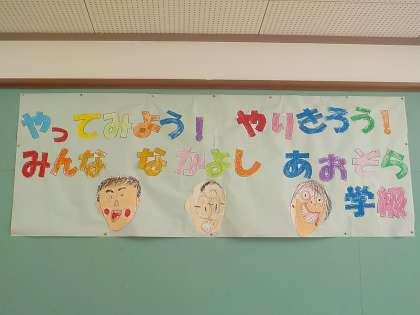 やってみよう！ やりきろう！
みんな なかよし あおぞら
学級